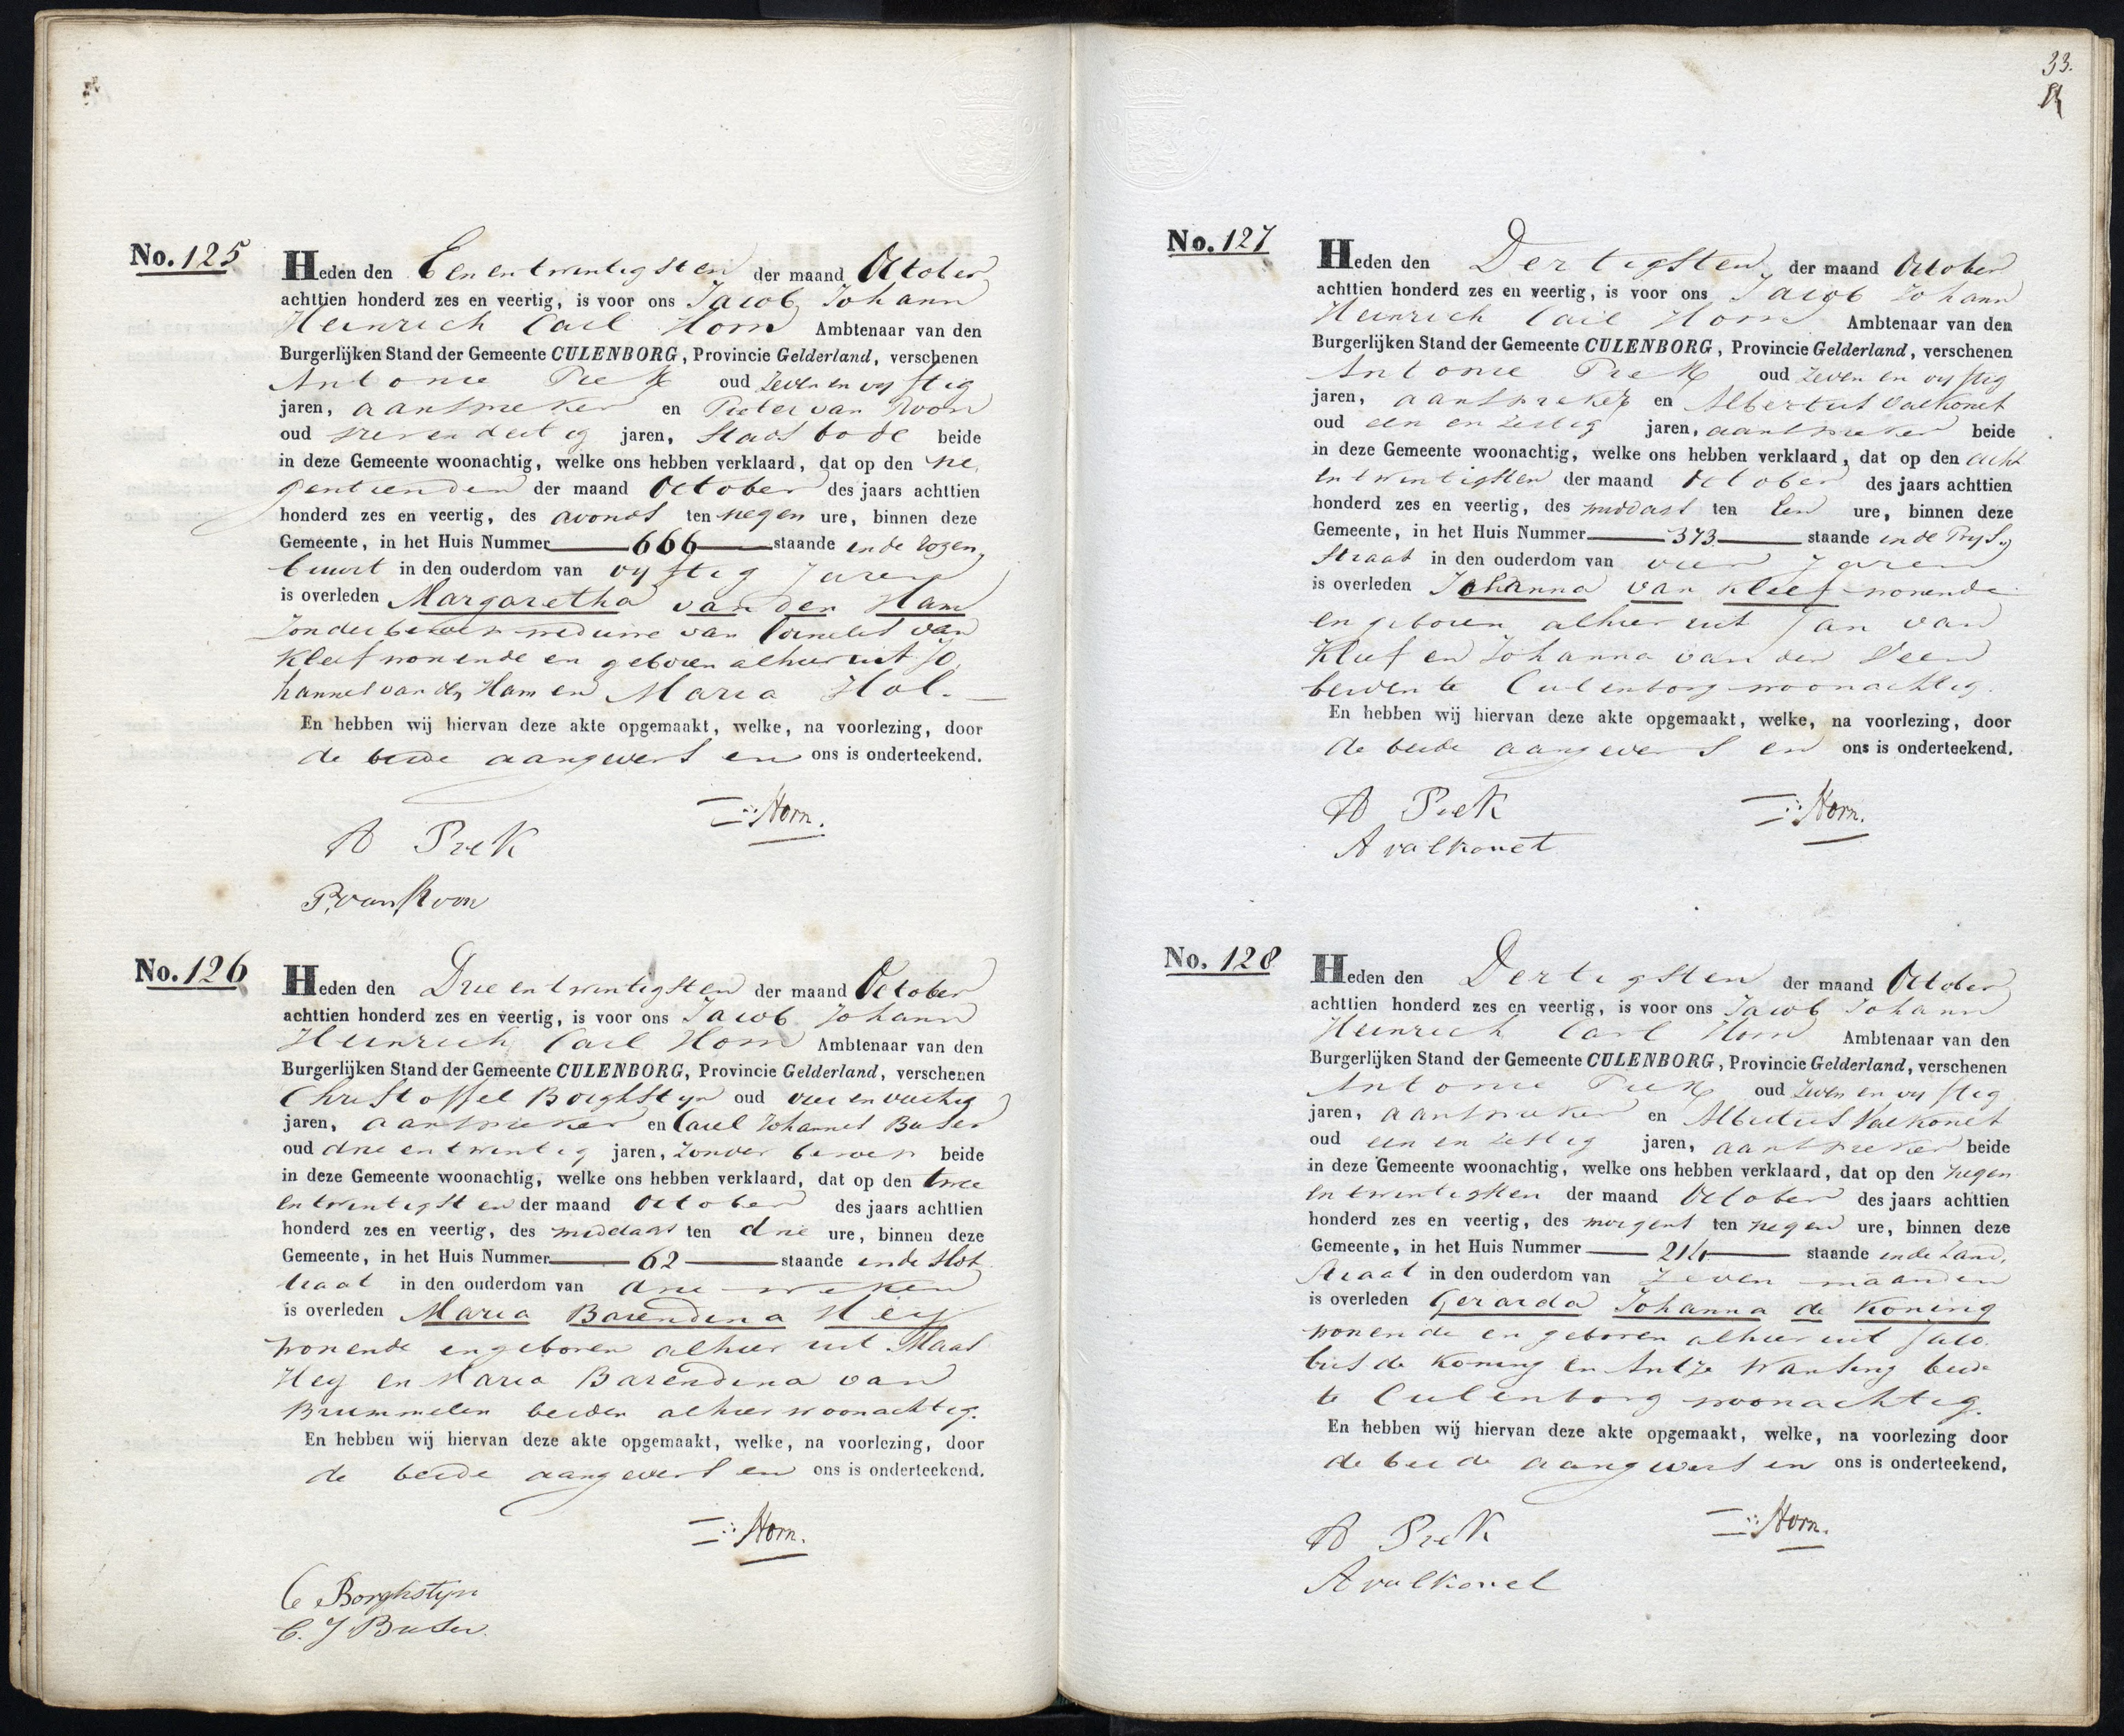 No. 125
Heden den Een en twintigsten der maand October
achttien honderd zes en veertig, is voor ons Jacob Johann
Heinrich Carl Horn Ambtenaar van den
Burgerlijken Stand der Gemeente CULENBORG, Provincie Gelderland, verschenen
Antonie Piek oud zeven en vyftig
jaren, aanspreker en Pieter van Roon
oud zeven dertig jaren, Stads bode beide
in deze Gemeente woonachtig, welke ons hebben verklaard, dat op den ne
gentienden der maand October des jaars achttien
honderd zes en veertig, des avonds ten negen ure, binnen deze
Gemeente, in het Huis Nummer 666 staande in de
buurt in den ouderdom van vyftig Jaren
is overleden Margaretha van den Ham
zonder beroep weduwe van Cornelis van
Kleef wonende en geboren alhier uit Jo
hannes van den Ham en Maria Hol.
En hebben wij hiervan deze akte opgemaakt, welke, na voorlezing, door
de beide aangevers en ons is onderteekend.
Horn.
A Piek
P. van Roon
No. 126
Heden den Drie en twintigsten der maand October
achttien honderd zes en veertig, is voor ons Jacob Johann
Heinrich Carl Horn Ambtenaar van den
Burgerlijken Stand der Gemeente CULENBORG, Provincie Gelderland, verschenen
Christoffel Borghstyn oud vier en veertig
jaren, aanspreker en Carel Johannes Buser
oud drie en twintig jaren, zonder beroep beide
in deze Gemeente woonachtig, welke ons hebben verklaard, dat op den twee
en twintigsten der maand October des jaars achttien
honderd zes en veertig, des middags ten drie ure, binnen deze
Gemeente, in het Huis Nummer 62 staande in de Slot
straat in den ouderdom van drie weken
is overleden Maria Barendina Hey
wonende en geboren alhier uit Maas
Hey en Maria Barendina van
Brummelen beiden alhier woonachtig.
En hebben wij hiervan deze akte opgemaakt, welke, na voorlezing, door
de beide aangevers en ons is onderteekend.
Horn.
C Borghstyn
C. J Buser
33.
No. 127
Heden den Dertigsten der maand October
achttien honderd zes en veertig, is voor ons Jacob Johann
Heinrich Carl Horn Ambtenaar van den
Burgerlijken Stand der Gemeente CULENBORG, Provincie Gelderland, verschenen
Antonie Piek oud zeven en vyftig
jaren, aanspreker en Albertus Valkonet
oud een en zestig jaren, aanspreker beide
in deze Gemeente woonachtig, welke ons hebben verklaard, dat op den acht
en twintigsten der maand October des jaars achttien
honderd zes en veertig, des middags ten een ure, binnen deze
Gemeente, in het Huis Nummer 373 staande in de Prys
Straat in den ouderdom van vier Jaren
is overleden Johanna van Kleef wonende
en geboren alhier uit Jan van
Kleef en Johanna van der Veen
beiden te Culenborg woonachtig.
En hebben wij hiervan deze akte opgemaakt, welke, na voorlezing, door
de beide aangevers en ons is onderteekend.
Horn.
A Piek
A valkonet
No. 128
Heden den Dertigsten der maand October
achttien honderd zes en veertig, is voor ons Jacob Johann
Heinrich Carl Horn Ambtenaar van den
Burgerlijken Stand der Gemeente CULENBORG, Provincie Gelderland, verschenen
Antonie Piek oud zeven en vyftig
jaren, aanspreker en Albertus Valkonet
oud een en zestig jaren, aanspreker beide
in deze Gemeente woonachtig, welke ons hebben verklaard, dat op den negen
en twintigsten der maand October des jaars achttien
honderd zes en veertig, des morgens ten negen ure, binnen deze
Gemeente, in het Huis Nummer staande in de Zand
Straat in den ouderdom van zeven maanden
is overleden Gerarda Johanna de Koning
wonende en geboren alhier uit Jaco
bus de Koning en Antje Wansing beide
te Culenborg woonachtig.
En hebben wij hiervan deze akte opgemaakt, welke, na voorlezing door
de beide aangevers en ons is onderteekend,
Horn.
A Piek
A valkonet